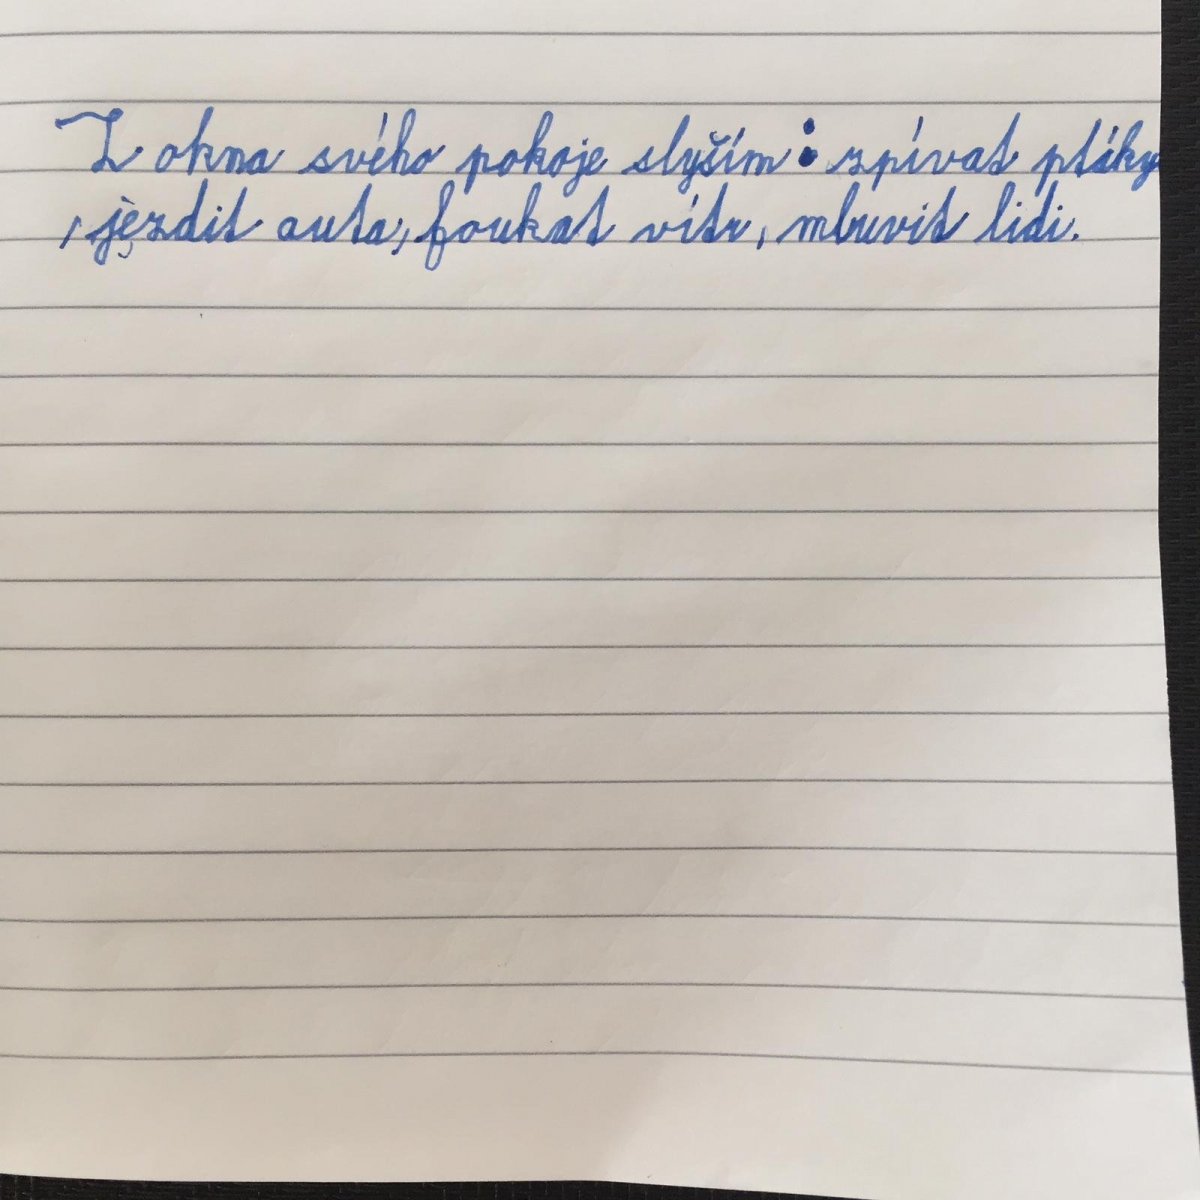 Z okna svého pokoje slyším : zpívat ptáky
, jezdit auta, foukat vítr, mluvit lidi.